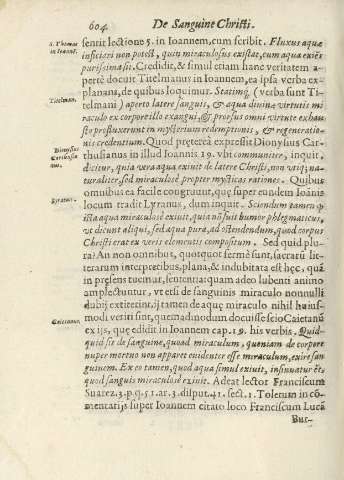 604 De Sanguine Christi.
S. Thomas in Ioann.
sentit lectione 5. in Ioannem, cum scribit. Fluxus aquæ
inficiari non potest, quin miraculosus existat, cum aqua exier
purissima sit. Credidit, & simul etiam hanc veritatem a
pertè docuit Titelmanus in Ioannem, ea ipsa verba ex-
planans, de quibus loquimur.
Titelman.
Statimq́ (verba sunt Ti-
telmani) aperto latere sanguis, & aqua diuinæ virtutis mi
raculo ex corpore illo exangui, & prorsus omni virtute exhau
sto profluxerunt in mysterium redemptionis, & regeneratio-
nis credentium. Quod præterea expressit Dionysius Car-
Dionysius
thusianus in illud Ioannis 19. vbi communiter, inquit,
dicitur, quia vera aqua exiuit de latere Christi, non vtiq; na-
turaliter, sed miraculosè propter mysticas rationes. Quibus
omnibus ea facile congruunt, quę super eundem Ioānis
Lyranus.
locum tradit Lyranus, dum inquit. Sciendum tamen q̃
ista aqua miraculosè exiuit, quia nō fuit humor phlegmaticus,
vt dicunt aliqui, sed aqua pura, ad ostendendum, quod corpus
Christi erat ex veris elementis compositum. Sed quid plu-
ra? An non omnibus, quotquot fermè sunt, sacrarū lit-
terarum interpretibus, plana, & indubitata est hęc, quā
in presens tucinur, sententia: quam adeo lubenti animo
amplectuntur, vt etsi de sanguinis miraculo nonnulli
dubij extiterint, ij tamen de aquę miraculo nihil huius-
modi veriti sint, quemadmodum docuisse scio Caietanū
Caietanus.
ex ijs, quę edidit in Ioannem cap. 19. his verbis. Quid-
quid sit de sanguine, quoad miraculum, quoniam de corpore
nuper mortuo non apparet euidenter esse miraculum, exire san-
guinem. Ex eo tamen, quod aqua simul exiuit, insinuatur &
quod sanguis miraculosè exiuit. Adeat lector Franciscum
Suarez. 3. p. q. 51. ar. 3. disput. 41. sect. 1. Toletum in cō-
mentarijs super Ioannem citato loco Franciscum Lucā
Bur-